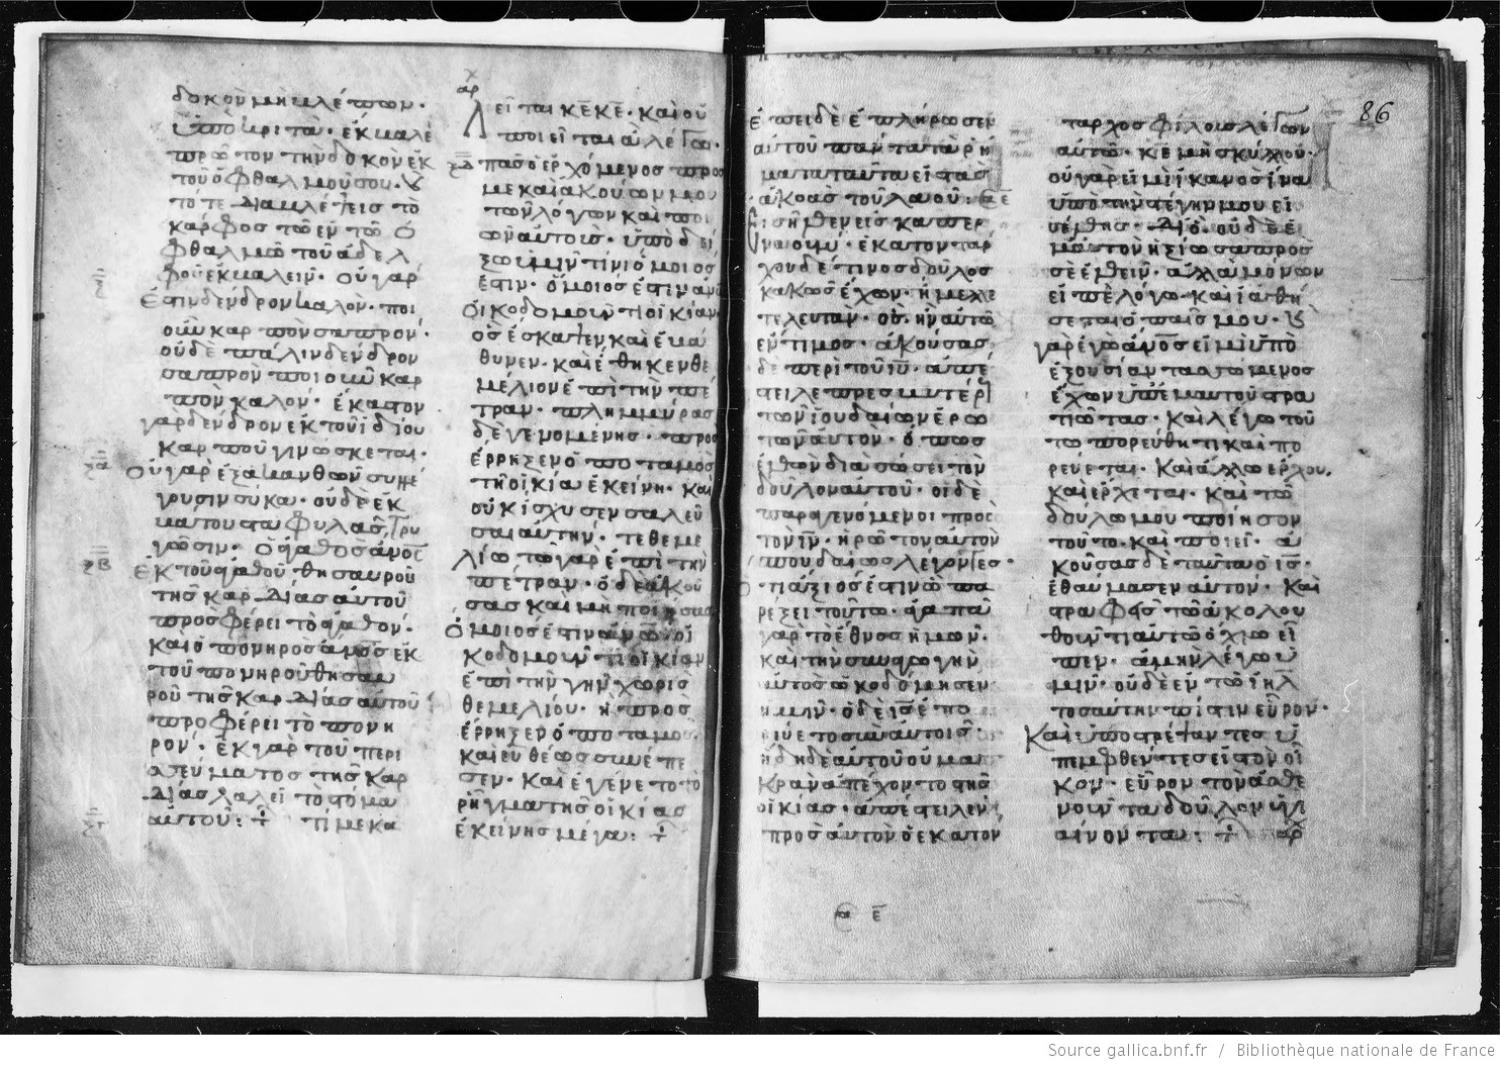 δοκὸν μὴ βλέπων·
ὑποκριτὰ· ἔκβαλε
πρῶτον τὴν δοκὸν ἐκ
τοῦ ὀφθαλμοῦ σου· καὶ
τότε διαβλέψεις τὸ
κάρφος τὸ ἐν τῶ ὀ
φθαλμῶ τοῦ ἀδελ
φοῦ ἐκβαλεῖν· Οὐ γάρ
ἐστιν δένδρον καλὸν· ποι
οῦν καρπὸν σαπρὸν·
οὐδὲ πάλιν δένδρον
σαπρὸν ποιοῦν καρ
πὸν καλὸν· ἕκαστον
γὰρ δένδρον ἐκ τοῦ ἰδίου
καρποῦ γινώσκεται·
Οὐ γὰρ ἐξ ἀκανθῶν συλλέ
γουσιν σύκα· οὐδὲ ἐκ
βάτου σταφυλὰς τρυ
γῶσιν· Ὁ ἀγαθὸς ἄνος
ἐκ τοῦ ἀγαθοῦ θησαυροῦ
τῆς καρδίας αὐτοῦ
προσφέρει τὸ ἀγαθόν·
καὶ ὁ πονηρὸς ἄνος ἐκ
τοῦ πονηροῦ θησαυ
ροῦ τῆς καρδίας αὐτοῦ
προφέρει τὸ πονη
ρόν· ἐκ γὰρ τοῦ περι
σεύματος τῆς καρ
δίας λαλεῖ τὸ στόμα
αὐτοῦ: + τί με κα
λεῖται κε κε· καὶ οὐ
ποιεῖται ἃ λέγω·
πᾶς ὁ ἐρχόμενος πρὸς
με καὶ ἀκούων μου
τῶν λόγων καὶ ποι
ῶν αὐτοὺς· ὑποδεί
ξω ὑμῖν τίνι ὅμοιος
ἐστιν· ὅμοιός ἐστιν ἀνω
οἰκοδομοῦντι οἰκίαν
ὃς ἔσκαψεν καὶ ἐβά
θυνεν· καὶ ἔθηκεν θε
μέλιον ἐπὶ τὴν πέ
τραν· πλημμύρας
δὲ γενομένης· προσ
έρρηξεν ὁ ποταμὸς
τῆ οἰκία ἐκείνη· καὶ
οὐκ ἴσχυσεν σαλεῦ
σαι αὐτὴν· τεθεμε
λίωτο γὰρ ἐπὶ τὴν
πέτραν· ὁ δὲ ἀκού
σας καὶ μὴ ποιήσας
ὅμοιός ἐστιν ἀνω οἰ
κοδομοῦντι οἰκίαν
ἐπὶ τὴν γῆν χωρὶς
θεμελίου· ἧ προσ
έρρηξεν ὁ ποταμὸς·
καὶ εὐθέως συνέπε
σεν· καὶ ἐγένετο τὸ
ρῆγμα τῆς οἰκίας
ἐκείνης μέγα: +
86
ἐπειδὲ ἐπλήρωσεν
αὐτοῦ πάντα τὰ ρή
ματα ταῦτα εἰς τὰς
ἀκοὰς τοῦ λαοῦ:
εἰσῆλθεν εἰς καπερ
ναούμ· ἑκατοντάρ
χου δέ τινος δοῦλος
κακῶς ἔχων· ἤμελλε
τελευτᾶν· ὃς ἦν αὐτῶ
ἔντιμος· ἀκούσας
δὲ περὶ τοῦ ιυ· ἀπέ
στειλε πρεσβυτέρους
τῶν ἰουδαίων ἐρω
τῶν αὐτὸν· ὅπως
ἐλθὼν διασώσει τὸν
δοῦλον αὐτοῦ· οἱ δὲ
παραγενόμενοι πρὸς
τὸν ιν· ἠρώτον αὐτὸν
σπουδαίως λέγοντες·
ὅτι ἄξιός ἐστιν ὧ πα
ρέξει τοῦτο· ἀγαπᾶ
γὰρ τὸ ἔθνος ἡμῶν·
καὶ τὴν συναγωγὴν
αὐτὸς ὠκοδόμησεν
ἡμῖν· ὁ δὲ ις ἐπο
ρεύετο σὺν αὐτοῖς·
ἤδη δὲ αὐτοῦ οὐ μα
κρὰν ἀπέχοντος τῆς
οἰκίας· ἀπέστειλεν
πρὸς αὐτὸν ὁ ἑκατον
ταρχος φίλους λέγων
αὐτῶ· κε μὴ σκύλλου·
οὐ γὰρ εἰμὶ ἱκανὸς ἵνα
ὑπὸ τὴν στέγην μου εἰ
σέλθης· Διὸ οὐδὲ ἐ
μαυτὸν ἠξίωσα πρὸς
σὲ ἐλθεῖν· ἀλλὰ μόνον
εἰπὲ λόγω· καὶ ἰαθή
σεται ὁ παῖς μου· καὶ
γὰρ ἐγὼ ἄνος εἰμὶ ὑπὸ
ἐξουσίαν τασσόμενος
ἔχων ὑπ' ἐμαυτοῦ στρα
τιώτας· καὶ λέγω τού
τω πορεύθητι καὶ πο
ρεύεται· καὶ ἄλλω ἔρχου·
καὶ ἔρχεται· καὶ τῶ
δούλω μου ποίησον
τοῦτο· καὶ ποιεῖ· ἀ
κούσας δὲ ταῦτα ὁ ις·
ἐθαύμασεν αὐτὸν· καὶ
στραφεὶς τῶ ἀκολου
θοῦντι αὐτῶ ὄχλω εἶ
πεν· ἀμὴν λέγω ὑ
μῖν· οὐδὲ ἐν τῶ ιηλ
τοσαύτην πίστιν εὗρον·
Καὶ ὑποστρέψαντες οἱ
πεμφθέντες εἰς τὸν οἶ
κον· εὗρον τὸν ἀσθε
νοῦντα δοῦλον ὑγι
αίνοντα: +
Source gallica.bnf.fr / Bibliothèque nationale de France